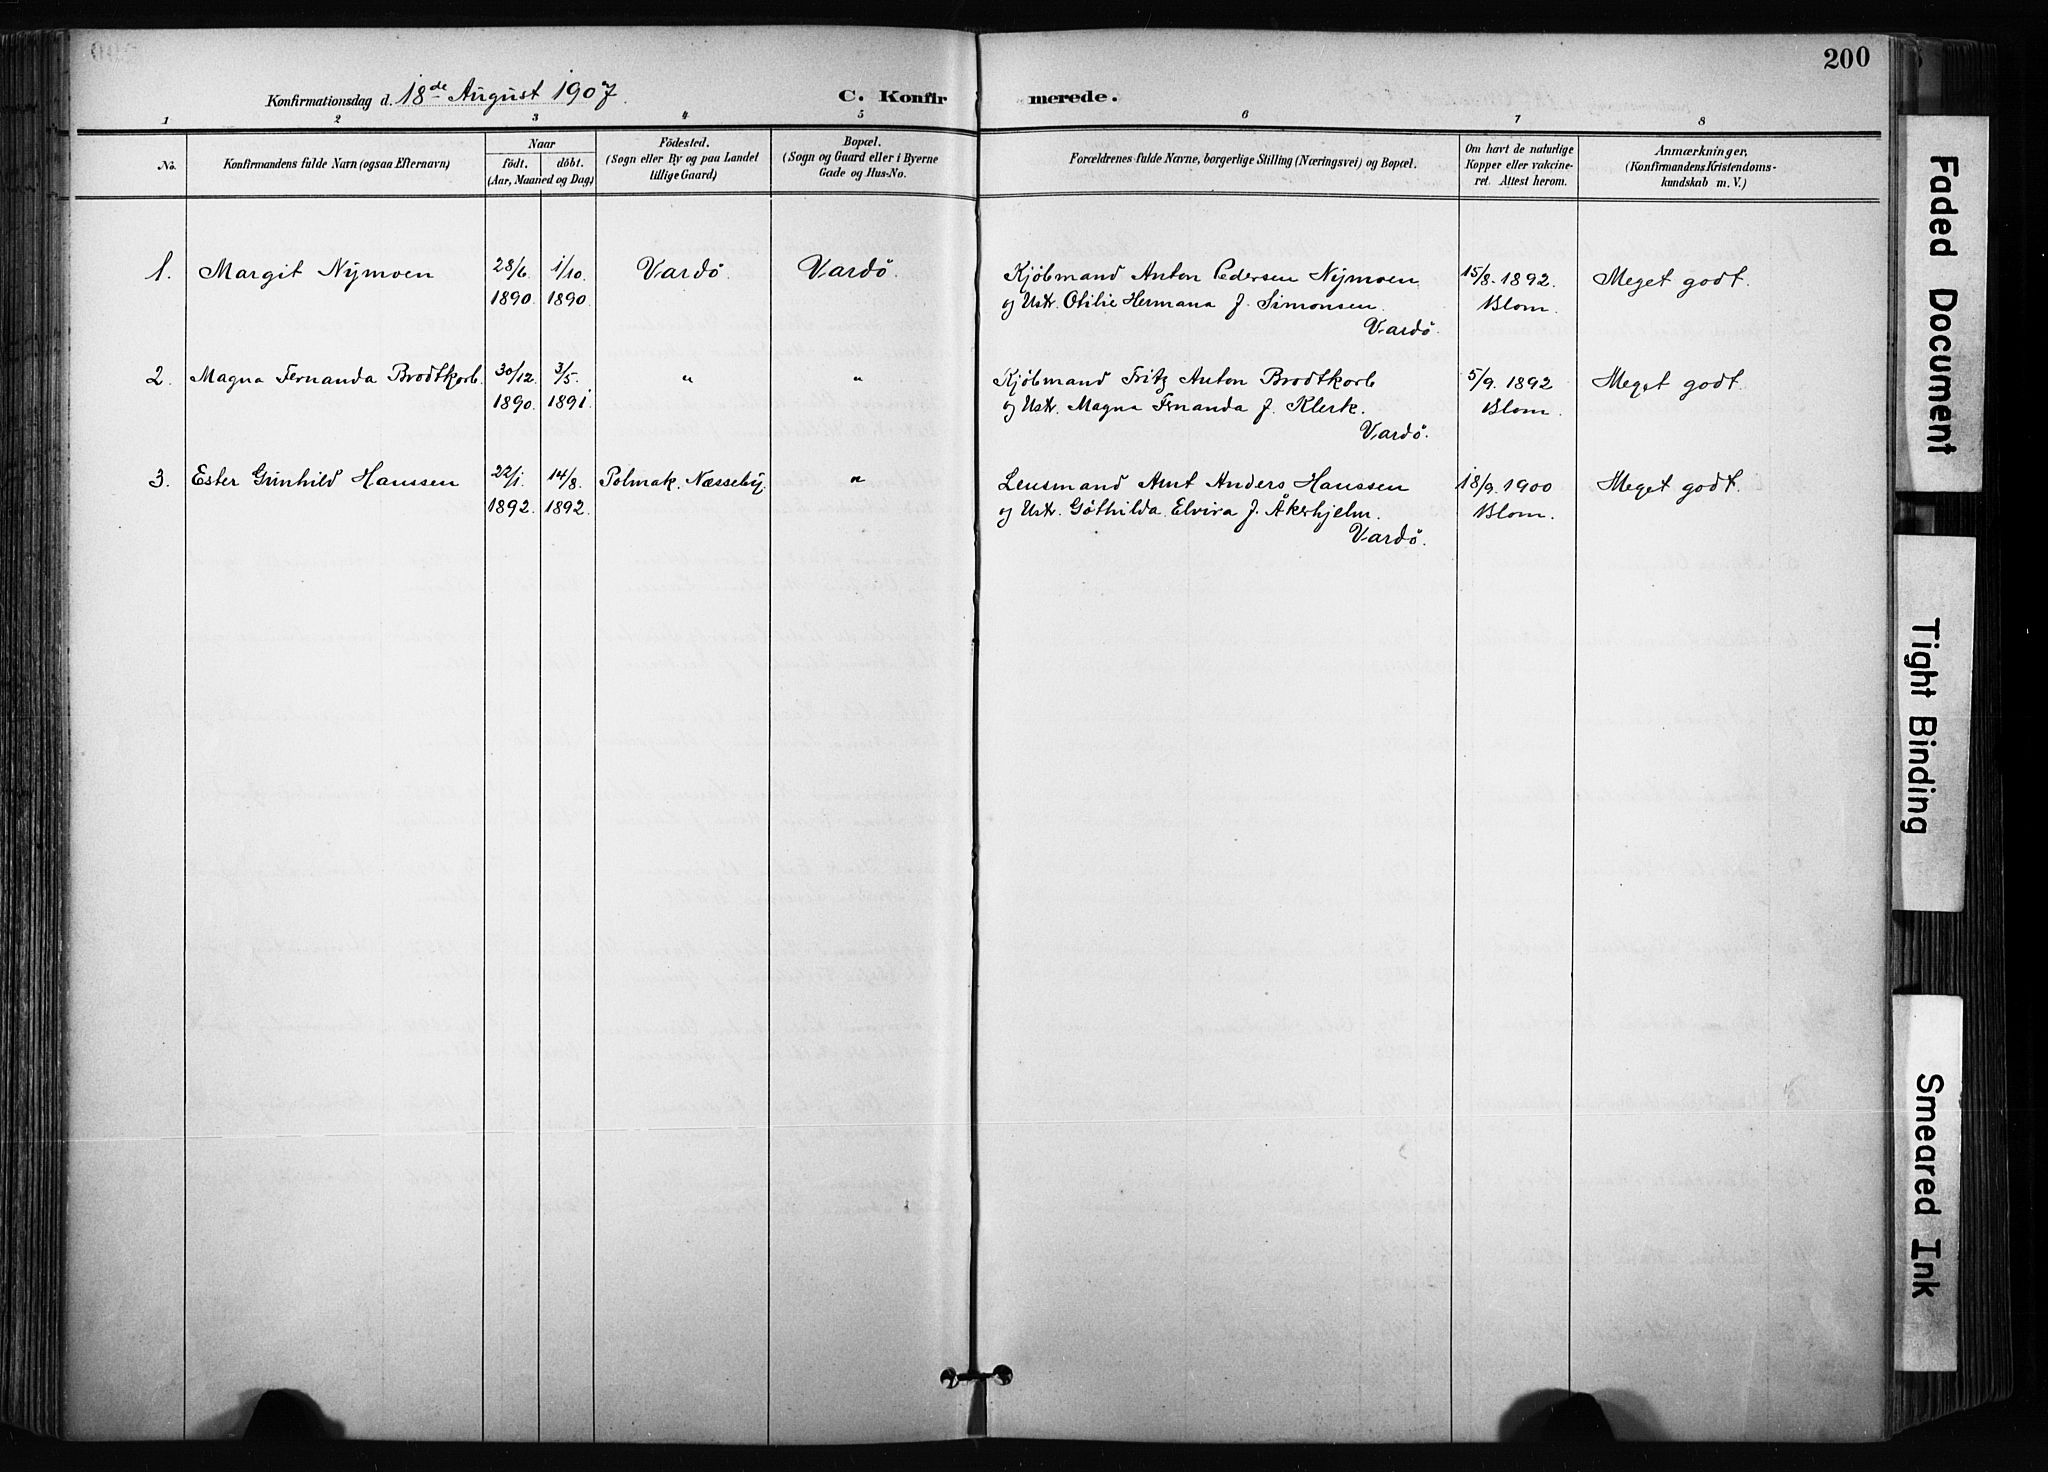 200
Konfirmationsdag d. 18de August 1907.
C. Konfirmerede.
1 2 3 4 5 6 7 8
No.
Konfirmandens fulde Navn (ogsaa Efternavn)
Naar
födt. döbt.
(Aar, Maaned og Dag)
Födested.
(Sogn eller By og paa Landet
tillige Gaard)
Bopæl.
(Sogn og Gaard eller i Byerne
Gade og Hus-No.
Forældrenes fulde Navne, borgerlige Stilling (Næringsvei) og Bopæl.
Om havt de naturlige
Kopper eller vakcine-
ret. Attest herom.
Anmærkninger,
(Konfirmandens Kristendoms-
kundskab m. V.)
1. Margit Nymoen 28/6 1/10. Vardö. Vardö. Kjöbmand Anton Pedersen Nymoen 15/8-1892. Meget godt.
1890. 1890. og Ustr. Otilie Hermana f. Simonsen. Blom.
Vardö.
2. Magna Fernanda Brodtkorb. 30/12. 3/5. " " Kjöbmand Fritz Anton Brodtkorb 5/9. 1892 Meget godt.
1890. 1891. og Ustr. Magna Fernanda f. Klerk. Blom.
Vardö.
3. Ester Gunhild Hanssen 22/1. 14/8. Polmak. Næsseby. " Lensmand Amt Anders Hanssen 18/9. 1900 Meget godt.
1892. 1892. og Ustr. Göthilda Elvira f. Åkerhjelm. Blom.
Vardö.
Faded Document
Tight Binding
Smeared Ink